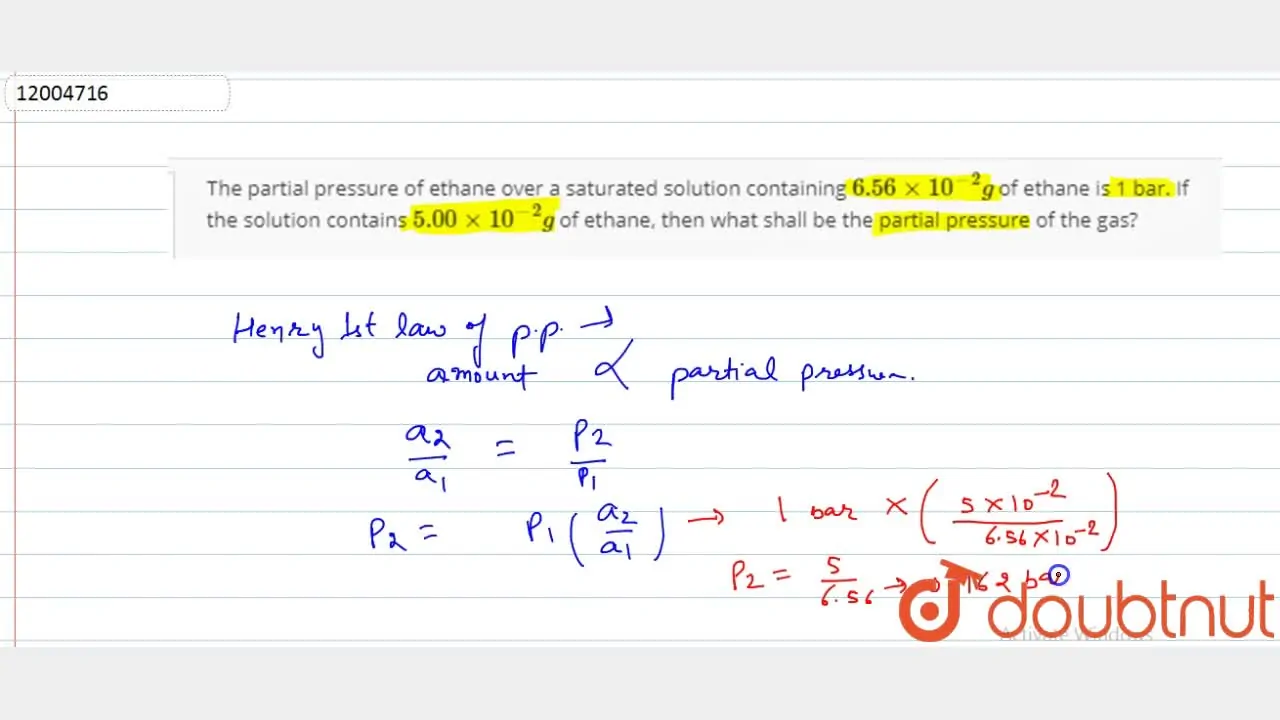 12004716
The partial pressure of ethane over a saturated solution containing 6.56 × 10⁻² g of ethane is 1 bar. If
the solution contains 5.00 × 10⁻² g of ethane, then what shall be the partial pressure of the gas?
Henry 1st law of p.p. →
amount ∝ partial pressure.
a₂/a₁ = P₂/P₁
P₂ = P₁ (a₂/a₁) → 1 bar × (5 × 10⁻² / 6.56 × 10⁻²)
P₂ = 5/6.56 →
doubtnut
Activate Windows